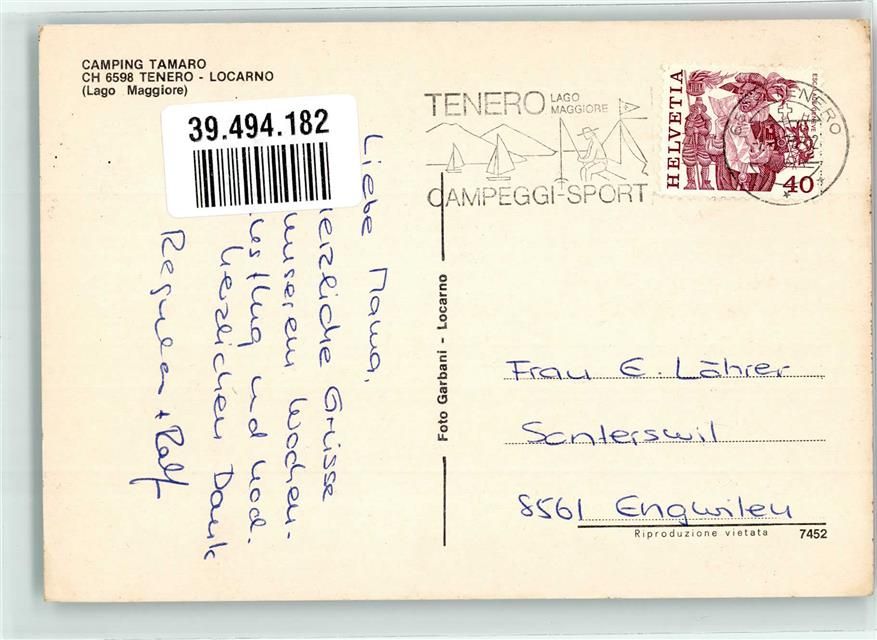 CAMPING TAMARO
CH 6598 TENERO - LOCARNO
(Lago Maggiore)
39.494.182
Liebe Mama,
Herzliche Grüsse
unserem Wochen-
und
herzlichen Dank
Regula + Ralf
TENERO LAGO MAGGIORE
CAMPEGGI-SPORT
HELVETIA
40
TENERO
Foto Garbani - Locarno
Frau E. Löhrer
Sonterswil
8561 Engwilen
Riproduzione vietata 7452